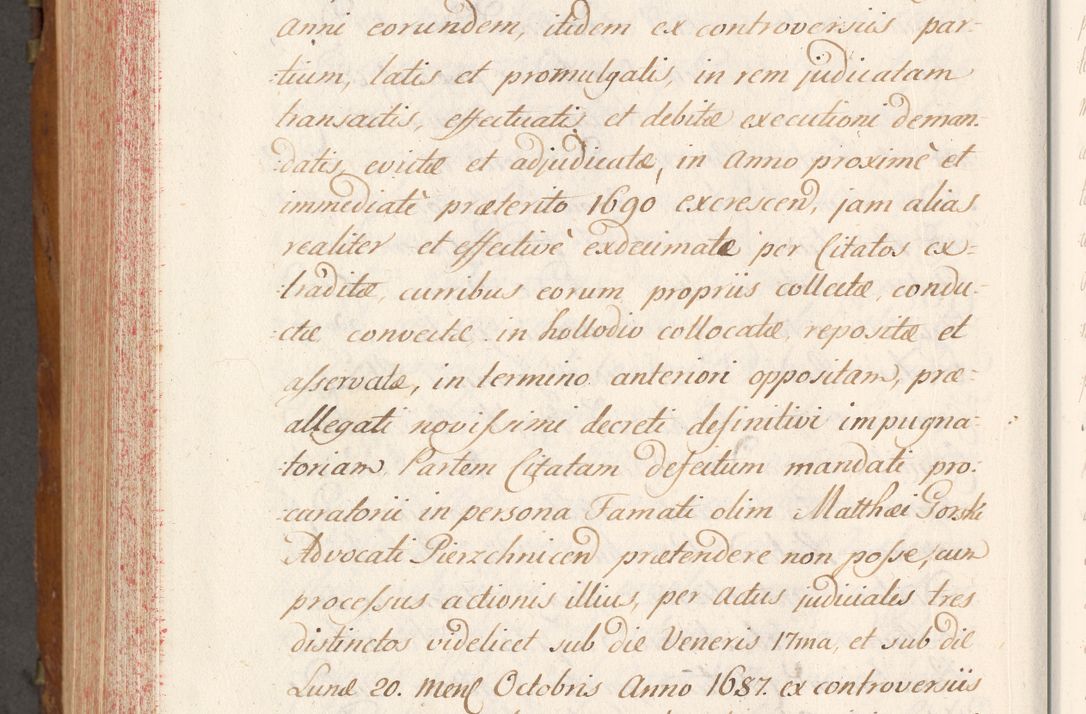 anni eorundem, itidem ex controversiis par-
tium, latis et promulgatis, in rem judicatam
transactis, effectuatis et debitæ executioni deman-
datis, evictæ et adjudicatæ, in anno proximè et
immediatè præterito 1690 excrescen, jam alias
realiter et effectivè exdecimatæ per Citatos ex-
traditæ, curribus eorum propriis collectæ, condu-
ctæ, convectæ in hollodio collocatæ, repositæ et
asservatæ, in termino anteriori oppositam, præ-
allegati novissimi decreti definitivi impugna-
toriam, Partem Citatam defectum mandati pro-
curatorii in persona Famati olim Matthæi Gorski
Advocati Pierzchnicen prætendere non posse, cum
processus actionis illius, per actus judiciales tres
distinctos videlicet sub die Veneris 17ma, et sub die
Lunæ 20. Mens Octobris Anno 1687. ex controversiis